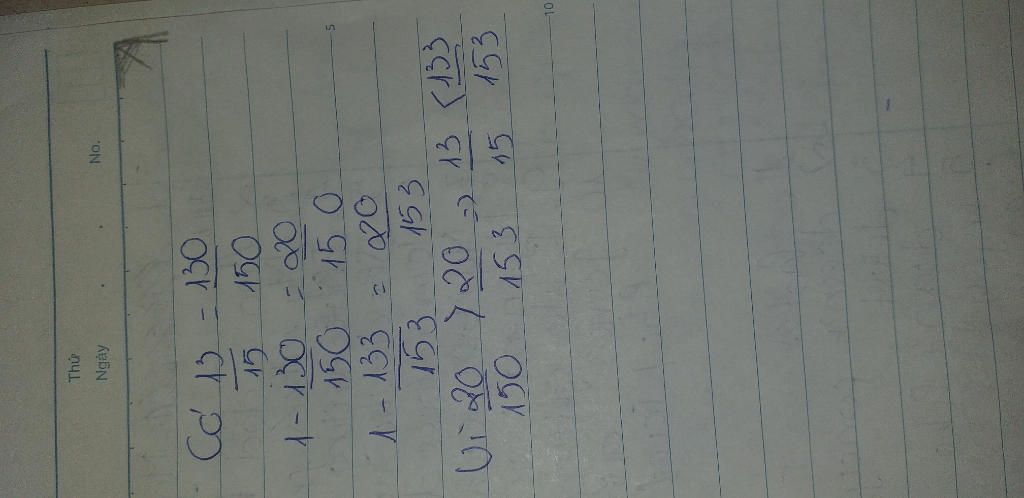 Thứ
Ngày No.
Có 13/15 = 130/150
1 - 130/150 = 20/150
1 - 133/153 = 20/153
Vì 20/150 > 20/153 => 13/15 < 133/153
5
10